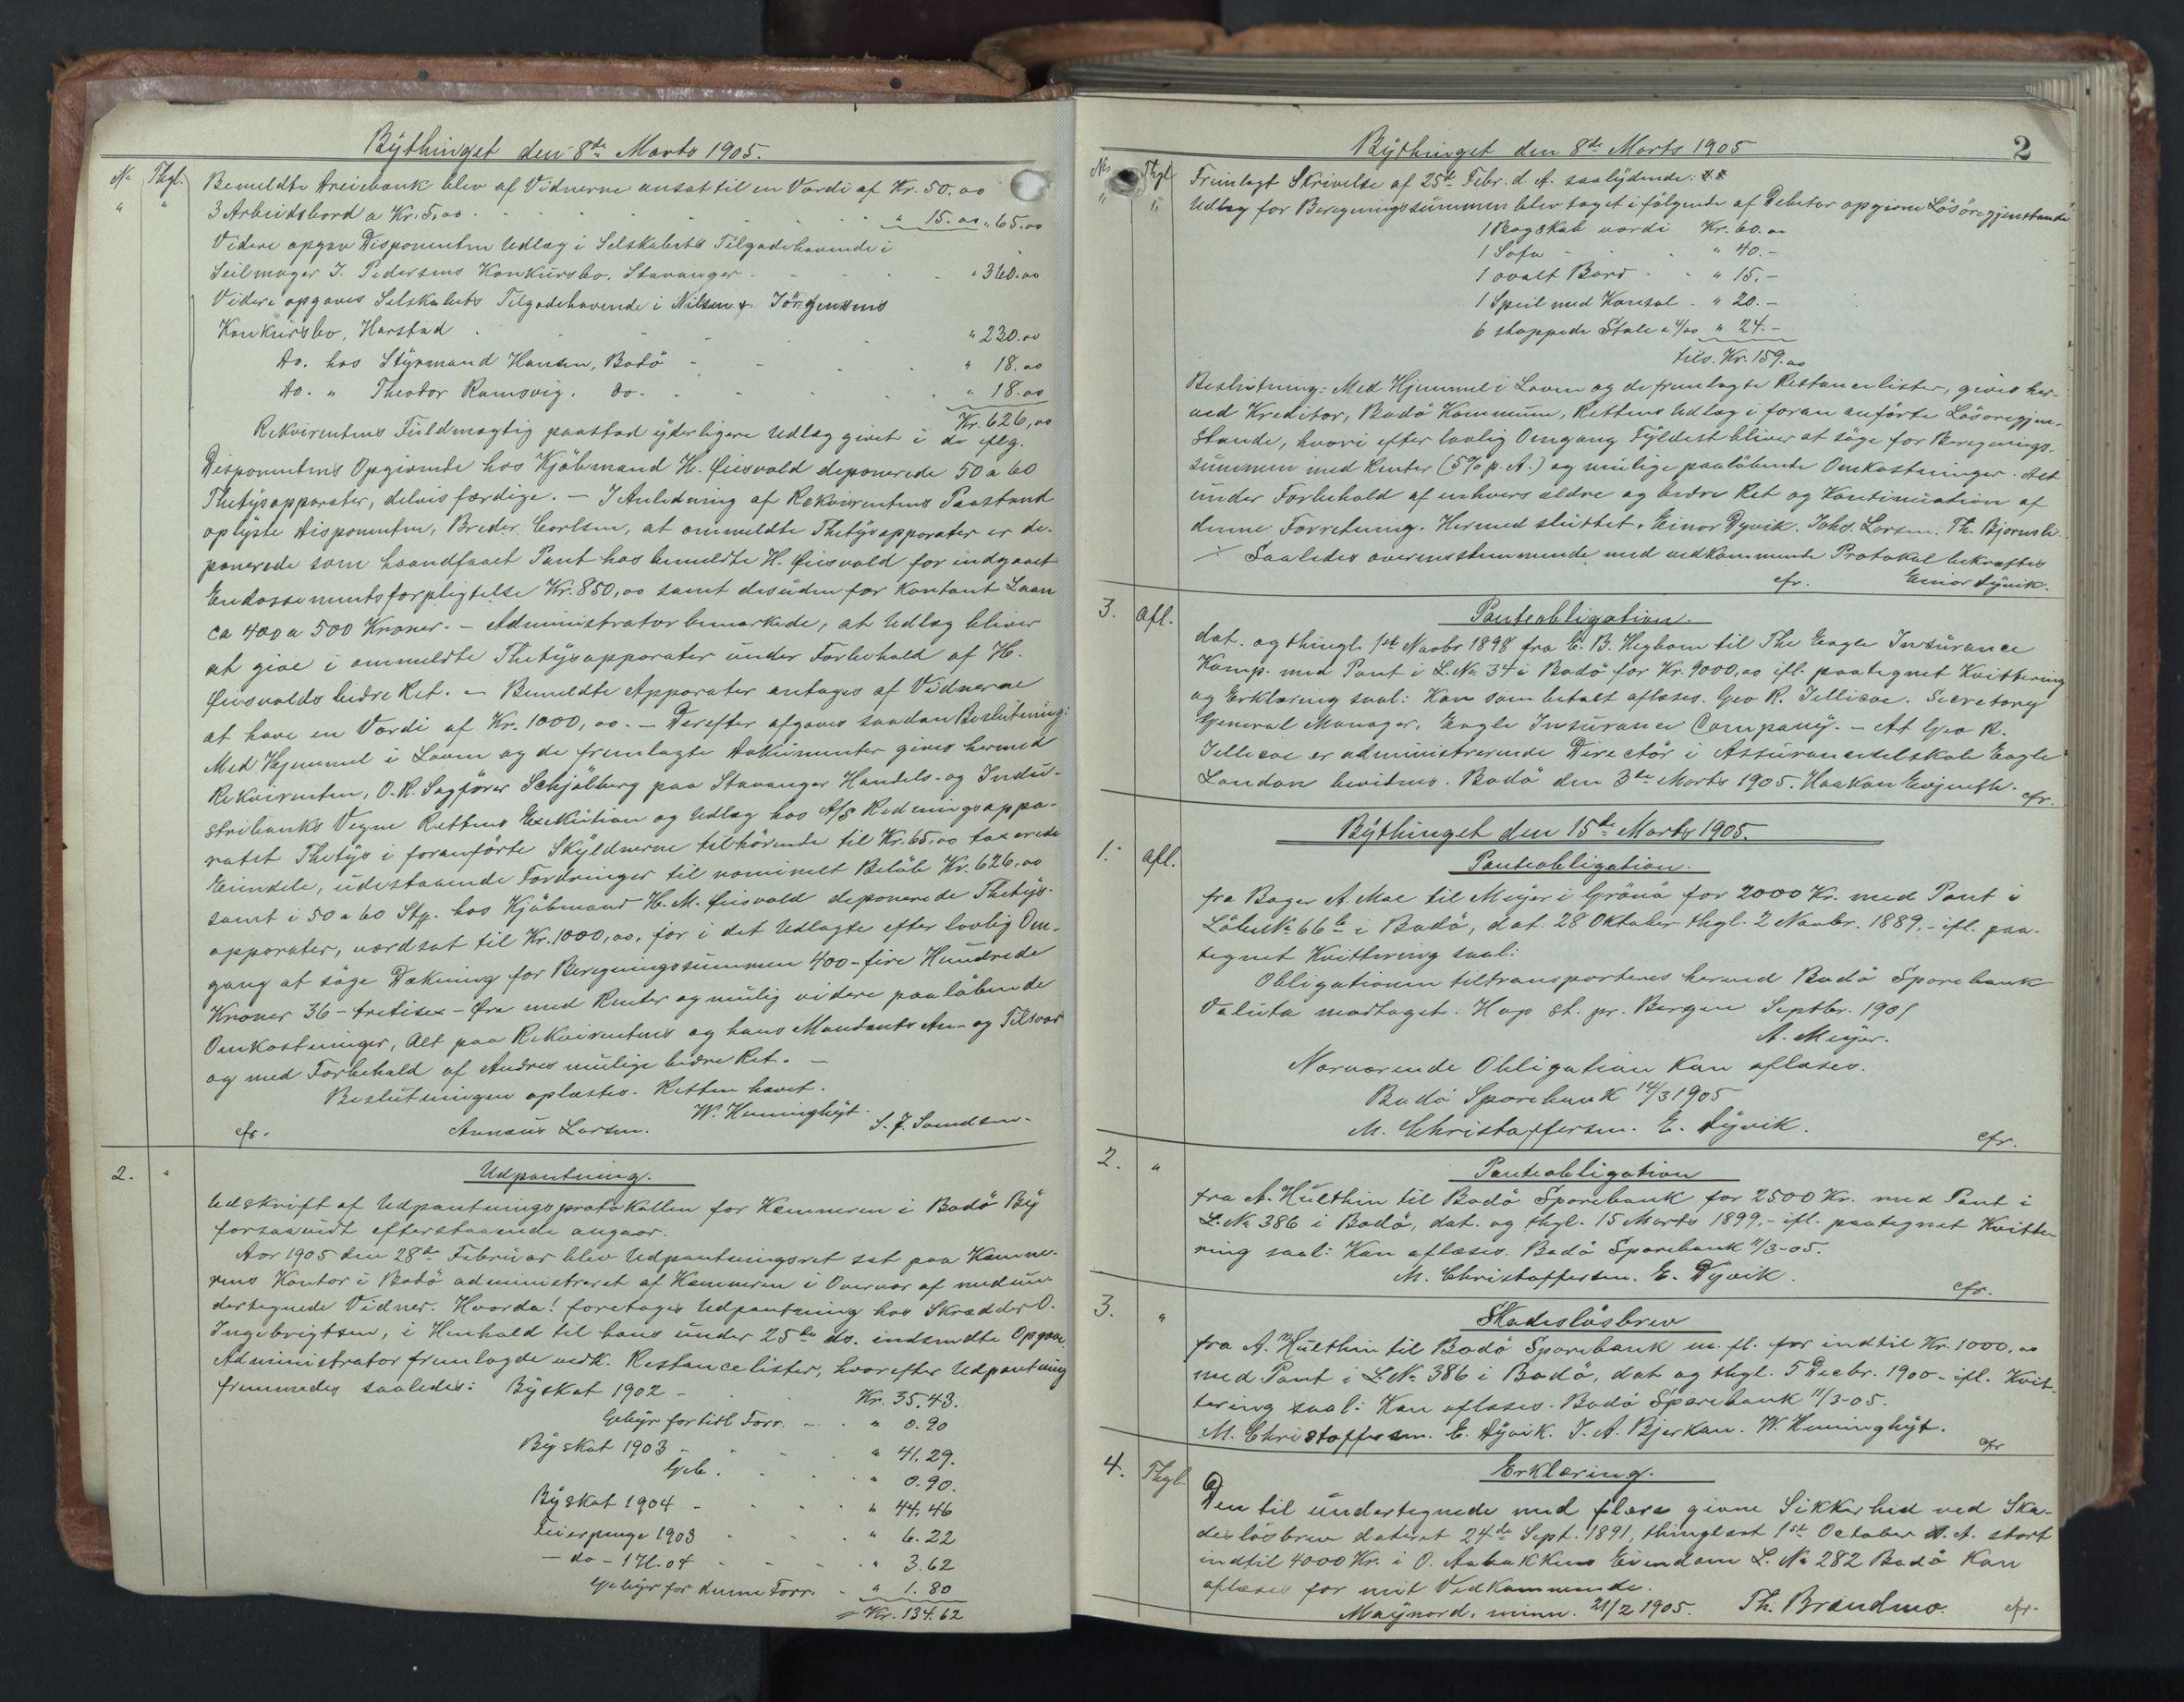 Bÿthinget den 8de Marts 1905.
No Thgl. Bemeldte Dreiebænk blev af Vidnerne ansat til en Værdi af Kr. 50.00
" " 3 Arbeidsbord a Kr. 5,00 . . . " 15.00 " 65.00
Videre opgav Disponenten Udlæg i Selskabets Tilgodehavende i
Seilmager J. Pedersens Konkursbo, Stavanger . . . " 360.00
Videre opgaves Selskabets Tilgodehavende i Nilsen & Jörgensens
Konkursbo, Harstad . . . " 230.00
do. hos Stÿrmand Hansen, Bodö - . . " 18.00
do. " Theodor Ramsvig, do. . . . " 18.00
Kr. 626,00
Rekvirentens Fuldmægtig paastod ÿderligere Udlæg givet i de iflg.
Disponentens Opgivende hos Kjöbmand H. Öiesvold deponerede 50 a 60
Thetÿsapparater, delvis færdige. — I Anledning af Rekvirentens Paastand
oplÿste Disponenten, Breder Corlsen, at ommeldte Thetÿsapparater er de-
ponerede som haandfaaet Pant hos bemeldte H. Öiesvold for indgaaet
Endossementsforpligtelse Kr. 850,00 samt desuden for Kontant Laan
ca 400 a 500 Kroner. — Administrator bemærkede, at Udlæg bliver
at give i ommeldte Thetÿsapparater under Forbehold af H.
Öiesvolds bedre Ret. — Bemeldte Apparater antages af Vidnerne
at have en Værdi af Kr. 1000,00. — Derefter afgaves saadan Beslutning:
Med Hjemmel i Loven og de fremlagte Dokumenter gives hermed
Rekvirenten, O.R. Sagförer Schjölberg paa Stavanger Handels- og Indu-
stribanks Vegne Rettens Exekution og Udlæg hos A/S Redningsappa-
ratet Thetÿs i foranförte Skÿldnerne tilhörende til Kr. 65,00 taxerede
Eiendele, udestaaende Fordringer til nominelt Belöb Kr. 626,00
samt i 50 a 60 Stk. hos Kjöbmand H. M. Öiesvold deponerede Thetÿs-
apparater, værdsat til Kr. 1000,00, for i det Udlagte efter lovlig Om-
gang at söge Dækning for Beregningssummen 400 - fire Hundrede
Kroner 36 - tretisex - Öre med Renter og mulig videre paalöbende
Omkostninger, Alt paa Rekvirentens og hans Mandants An- og Tilsvar
og med Forbehold af Andres mulige bedre Ret. —
Beslutningen oplæstes. Retten hævet.
W. Hemminghÿt.
cfr. Annæus Larsen. S. J.
2. " Udpantning.
Udskrift af Udpantningsprotokollen for Kæmneren i Bodö Bÿ
forsaavidt efterstaaende angaar.
Aar 1905 den 28de Februar blev Udpantningsret sat paa Kæmne-
rens Kontor i Bodö administreret af Kæmneren i Overvær af medun-
dertegnede Vidner. Hvorda! foretages Udpantning hos Skrædder O.
Ingebrigtsen, i Henhold til hans under 25de ds. indsendte Opgave.
Administrator fremlagde vedk. Restancelister, hvorefter Udpantning
fremmedes saaledes: Bÿskat 1902 - . . Kr. 35.43.
Gebÿr for tidl. Forr. - . " 0.90
Bÿskat 1903 - . . " 41.29.
Geb. . . " 0.90.
Bÿskat 1904 - . . " 44.46
Feierpenge 1903 . . " 6.22
- do - 1/1.04 - . . " 3.62
Gebÿr for denne Forr. - " 1.80
= Kr. 134.62
Bÿthinget den 8de Marts 1905
2
No Thgl. Fremlagt Skrivelse af 25de Febr. d. A. saalÿdende:
" " Udlæg for Beregningssummen blev taget i fölgende af Debitor opgivne Lösöregjenstande
1 Bogskab værdi Kr. 60.00
1 Sofa - " 40.-
1 ovalt Bord . " 15.-
1 Speil med Konsol . " 20.-
6 stoppede Stole a 4/00 " 24.-
tils. Kr. 159.00
Beslutning: Med Hjemmel i Loven og de fremlagte Restancelister, gives her-
ved Kreditor, Bodö Kommune, Rettens Udlæg i foran anförte Lösöregjen-
stande, hvori efter lovlig Omgang Fÿldest bliver at söge for Beregnings-
summen med Renter (5% p. A.) og mulige paalöbende Omkostninger. Alt
under Forbehold af enhvers ældre og bedre Ret og Kontinuation af
denne Forretning. Hermed sluttet. Einar Dyvik. Johs. Larsen. Th. Bjørnsli.
Saaledes overensstemmende med vedkommende Protokol bekræftes
cfr. Einar Dÿvik.
3. Afl. Panteobligation.
dat. og thingl. 1st Novbr 1898 fra C. B. Hegbom til The Eagle Insürance
Komp. med Pant i L. No 34 i Bodö for Kr. 9000,00 ifl. paategnet Kvittering
og Erklæring saal: Kan som betalt aflæses. Geo R. Jellicoe. Secretary
General Manager, Eagle Insürance Companÿ. — At Geo R.
Jellicoe er administrerende Directör i Assüranceselskab Eagle
London bevidnes. Bodö den 3de Marts 1905. Haakon Evjenth. cfr.
Bÿthinget den 15de Marts 1905.
1. Afl. Panteobligation.
fra Bager A. Moe til Meÿer i Grönö for 2000 Kr. med Pant i
Löbe No 66b i Bodö, dat. 28 Oktober thgl. 2 Novbr. 1889. - ifl. paa-
tegnet Kvittering saal:
Obligationen tiltransporteres herved Bodö Sparebank
Valuta modtaget. Hop St. pr. Bergen Septbr. 1901
A. Meÿer.
Nærværende Obligation kan aflæses.
Bodö Sparebank 14/3 1905
M. Christoffersen. E. Dÿvik. cfr.
2. " Panteobligation
fra A. Hülthin til Bodö Sparebank for 2500 Kr. med Pant i
L. No 386 i Bodö, dat. og thgl. 15 Marts 1899, - ifl. paategnet Kvitte-
ring saal: Kan aflæses. Bodö Sparebank 11/3-05.
M. Christoffersen. E. Dÿvik. cfr.
3. " Skadeslösbrev
fra A. Hülthin til Bodö Sparebank m. fl. for indtil Kr. 1000,00
med Pant i L. No 386 i Bodö, dat og thgl. 5 Decbr. 1900 - ifl. Kvit-
tering saal: Kan aflæses. Bodö Sparebank 11/3-05.
M. Christoffersen. E. Dÿvik. J. A. Bjerkan. W. Hemminghÿt. cfr
4. Thgl. Erklæring.
Den til undertegnede med flere givne Sikkerhed ved Ska-
deslösbrev dateret 24de Sept. 1891, thinglæst 1st October s. A. stort
indtil 4000 Kr. i O. Aabakkens Eiendom L. No 282 Bodö kan
aflæses for mit Vedkommende.
Maÿnord, minn. 21/2 1905. Th. Brandmo. cfr.